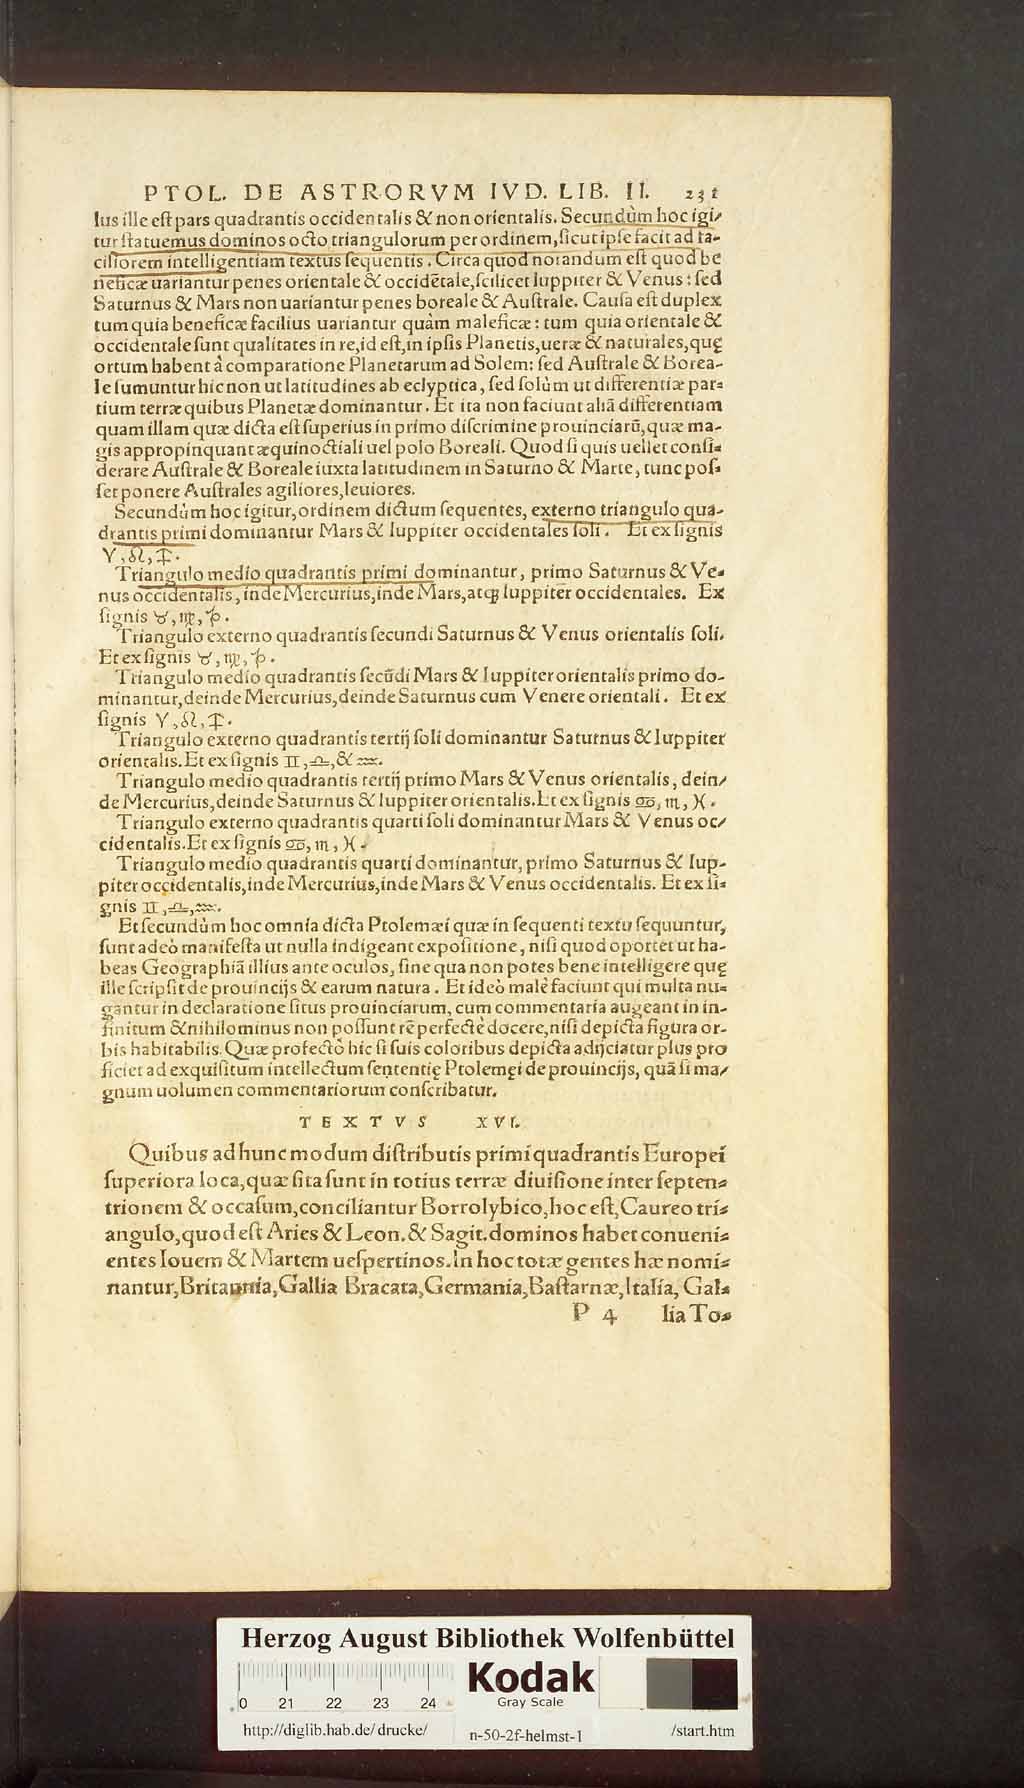 PTOL. DE ASTRORVM IVD. LIB. II. 231
lus ille est pars quadrantis occidentalis & non orientalis. Secundùm hoc igi/
tur statuemus dominos octo triangulorum per ordinem, sicut ipse facit ad fa-
ciliorem intelligentiam textus sequentis. Circa quod notandum est quod be
neficæ uariantur penes orientale & occidētale, scilicet Iuppiter & Venus: sed
Saturnus & Mars non uariantur penes boreale & Australe. Causa est duplex
tum quia beneficæ facilius uariantur quàm maleficæ: tum quia orientale &
occidentale sunt qualitates in re, id est, in ipsis Planetis, ueræ & naturales, quę
ortum habent à comparatione Planetarum ad Solem: sed Australe & Borea-
le sumuntur hic non ut latitudines ab eclyptica, sed solùm ut differentiæ par-
tium terræ quibus Planetæ dominantur. Et ita non faciunt aliā differentiam
quam illam quæ dicta est superius in primo discrimine prouinciarū, quæ ma-
gis appropinquant æquinoctiali uel polo Boreali. Quod si quis uellet consi-
derare Australe & Boreale iuxta latitudinem in Saturno & Marte, tunc pos-
set ponere Australes agiliores, leuiores.
Secundùm hoc igitur, ordinem dictum sequentes, externo triangulo qua-
drantis primi dominantur Mars & Iuppiter occidentales soli. Et ex signis
♈, ♌, ♐.
Triangulo medio quadrantis primi dominantur, primo Saturnus & Ve-
nus occidentalis, inde Mercurius, inde Mars, atq; Iuppiter occidentales. Ex
signis ♉, ♍, ♑.
Triangulo externo quadrantis secundi Saturnus & Venus orientalis soli.
Et ex signis ♉, ♍, ♑.
Triangulo medio quadrantis secūdi Mars & Iuppiter orientalis primo do-
minantur, deinde Mercurius, deinde Saturnus cum Venere orientali. Et ex
signis ♈, ♌, ♐.
Triangulo externo quadrantis tertij soli dominantur Saturnus & Iuppiter
orientalis. Et ex signis ♊, ♎, & ♒.
Triangulo medio quadrantis tertij primo Mars & Venus orientalis, dein/
de Mercurius, deinde Saturnus & Iuppiter orientalis. Et ex signis ♋, ♏, ♓.
Triangulo externo quadrantis quarti soli dominantur Mars & Venus oc/
cidentalis. Et ex signis ♋, ♏, ♓.
Triangulo medio quadrantis quarti dominantur, primo Saturnus & Iup-
piter occidentalis, inde Mercurius, inde Mars & Venus occidentalis. Et ex si-
gnis ♊, ♎, ♒.
Et secundùm hoc omnia dicta Ptolemæi quæ in sequenti textu sequuntur,
sunt adeò manifesta ut nulla indigeant expositione, nisi quod oportet ut ha-
beas Geographiā illius ante oculos, sine qua non potes bene intelligere quę
ille scripsit de prouincijs & earum natura. Et ideò malè faciunt qui multa nu-
gantur in declaratione situs prouinciarum, cum commentaria augeant in in-
finitum & nihilominus non possunt rē perfectè docere, nisi depicta figura or-
bis habitabilis. Quæ profectò hic si suis coloribus depicta adijciatur plus pro
ficiet ad exquisitum intellectum sententię Ptolemęi de prouincijs, quā si ma/
gnum uolumen commentariorum conscribatur.
TEXTVS XVI.
Quibus ad hunc modum distributis primi quadrantis Europei
superiora loca, quæ sita sunt in totius terræ diuisione inter septen-
trionem & occasum, conciliantur Borrolybico, hoc est, Caureo tri-
angulo, quod est Aries & Leon. & Sagit. dominos habet conueni-
entes Iouem & Martem uespertinos. In hoc totæ gentes hæ nomi-
nantur, Britannia, Gallia Bracata, Germania, Bastarnæ, Italia, Gal-
P 4 lia To-
Herzog August Bibliothek Wolfenbüttel
0 21 22 23 24
Kodak
Gray Scale
http://diglib.hab.de/drucke/ n-50-2f-helmst-1 /start.htm